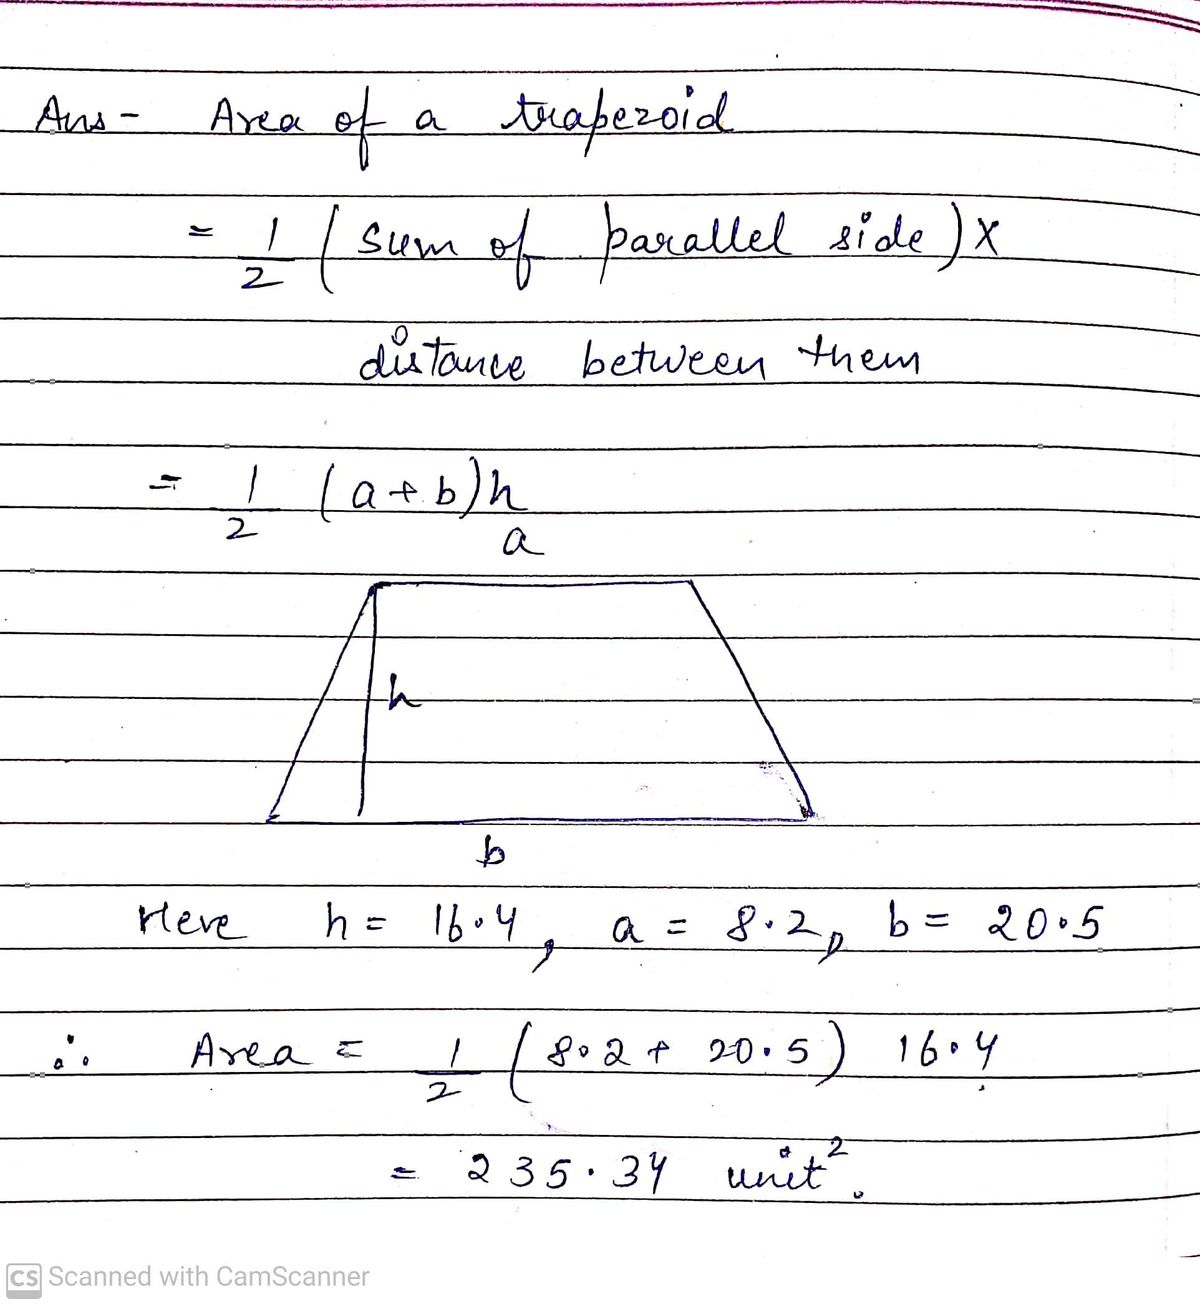 Ans - Area of a trapezoid
= 1/2 (sum of parallel side) x
distance between them
= 1/2 (a + b)h
a
h
b
Here h = 16.4, a = 8.2, b = 20.5
∴ Area = 1/2 (8.2 + 20.5) 16.4
= 235.34 unit².
CS Scanned with CamScanner